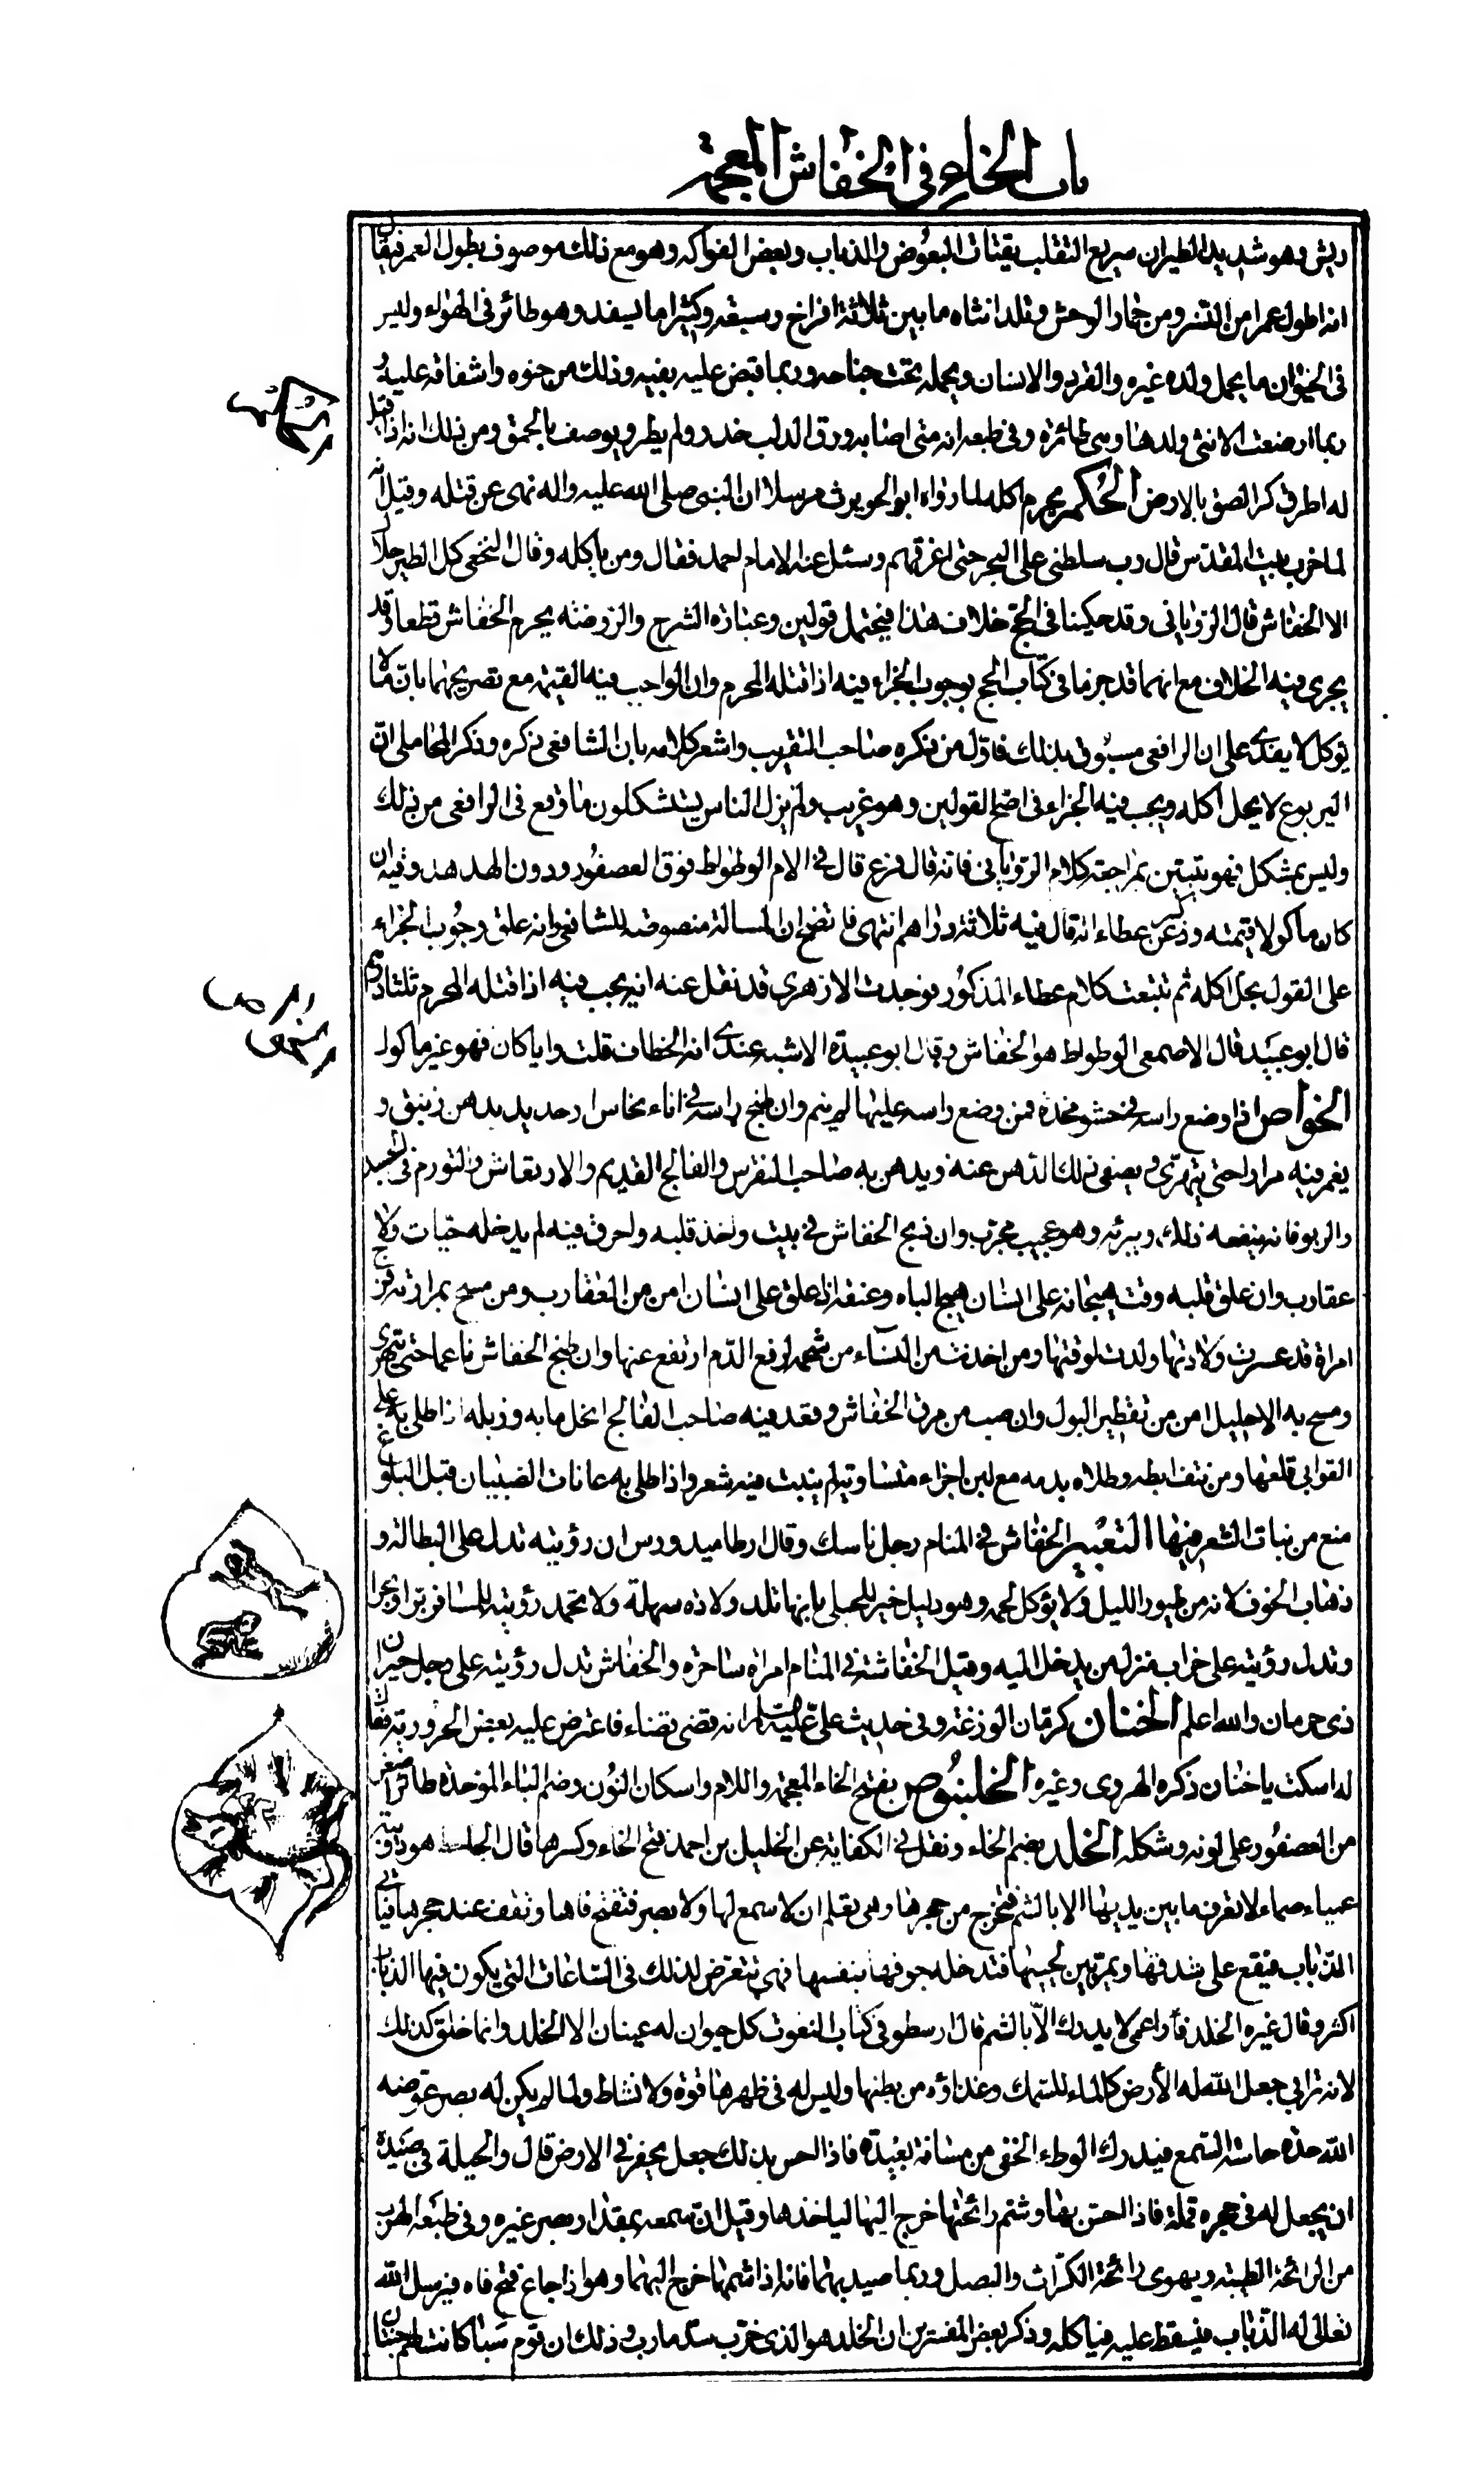 باب الخاء في الخفاش المعجمة
ريش وهو شديد الطيران سريع التقلب يقتات البعوض والذباب وبعض الفواكه وهو مع ذلك موصوف بطول العمر فيقال
انه اطول عمرا من النسر ومن حمار الوحش وتلد انثاه ما بين ثلاثة افراخ وسبعة وكثيرا ما يسفد وهو طائر في الهواء وليس
في الحيوان ما يحمل ولده غيره والقرد والانسان ويحمله تحت جناحه وربما قبض عليه بفيه وذلك من حنوه واشفاقه عليه و
ربما ارضعت الانثى ولدها وهي طائرة وفي طبعه انه متى اصابه ورق الدلب خدر ولم يطر ويوصف بالحمق ومن ذلك انه اذا قيل
له اطرق كرا لصق بالارض الحكم يحرم اكله لما رواه ابو الحويرث مرسلا ان النبي صلى الله عليه واله نهى عن قتله وقيل انه
لما خرب بيت المقدس قال رب سلطني على البحر حتى اغرقهم وسئل عنه الامام احمد فقال ومن ياكله وقال النخعي كل الطير حلال
الا الخفاش قال الروياني وقد حكينا في الحج خلاف هذا فيحتمل قولين وعبارة الشرح والروضة يحرم الخفاش قطعا وقد
يجرى فيه الخلاف مع انهما قد جزما في كتاب الحج بوجوب الجزاء فيه اذا قتله المحرم وان الواجب فيه القيمة مع تصريحهما بان ما لا
يوكل لا يفدى على ان الرافعي مسبوق بذلك فاول من ذكره صاحب التقريب واشعر كلامه بان الشافعي ذكره وذكر المحاملي ان
اليربوع لا يحل اكله ويجب فيه الجزاء في اصح القولين وهو غريب ولم يزل الناس يستشكلون ما وقع في الرافعي من ذلك
وليس بمشكل فهو يتبين بمراجعة كلام الروياني فانه قال فرع قال في الام الوطواط فوق العصفور ودون الهدهد وفيه ان
كان ماكولا قيمته وذكر عن عطاء انه قال فيه ثلاثة دراهم انتهى فاتضح ان المسالة منصوصة للشافعي وانه علق وجوب الجزاء
على القول بحل اكله ثم تتبعت كلام عطاء المذكور فوجدت الازهري قد نقل عنه انه يجب فيه اذا قتله المحرم ثلثا درهم
قال ابو عبيد قال الاصمعي الوطواط هو الخفاش وقال ابو عبيدة الاشبه عندي انه الخطاف قلت وايا كان فهو غير ماكول
الخواص اذا وضع راسه في حشو مخدة فمن وضع راسه عليها لم ينم وان طبخ راسه في اناء نحاس او حديد بدهن زنبق و
يغمر فيه مرارا حتى يتهرى ويصفى ذلك الدهن عنه ويدهن به صاحب النقرس والفالج القديم والارتعاش والتورم في الجسد
والربو فانه ينفعه ذلك ويبرئه وهو عجيب مجرب وان ذبح الخفاش في بيت واخذ قلبه واحرق فيه لم يدخله حيات ولا
عقارب وان علق قلبه وقت هيجانه على انسان هيج الباه وعنقه اذا علق على انسان امن من العقارب ومن مسح بمرارته فرج
امراة قد عسرت ولادتها ولدت لوقتها ومن اخذت من النساء من شحمه لرفع الدم ارتفع عنها وان طبخ الخفاش ناعما حتى يتهرى
ومسح به الاحليل امن من تقطير البول وان صب من مرق الخفاش وقعد فيه صاحب الفالج انحل ما به وزبله اذا طلي به على
القوابي قلعها ومن نتف ابطه وطلاه بدمه مع لبن اجزاء متساوية لم ينبت فيه شعر واذا طلى به عانات الصبيان قبل البلوغ
منع من نبات الشعر فيها التعبير الخفاش في المنام رجل ناسك وقال ارطاميدورس ان رؤيته تدل على البطالة و
ذهاب الخوف لانه من طيور الليل ولا يؤكل لحمه وهو دليل خير للحبلى بانها تلد ولادة سهلة ولا تحمد رؤيته للمسافر برا وبحرا
وتدل رؤيته على خراب منزل من يدخل اليه وقيل الخفاشة في المنام امراة ساحرة والخفاش تدل رؤيته على رجل حيران
ذي حرمان والله اعلم الخنان كرمان الوزغة وفي حديث علي عليه السلام انه قضى قضاء فاعترض عليه بعض الحرورية فقال
له اسكت يا خنان ذكره الهروي وغيره الخلنبوص بفتح الخاء المعجمة واللام واسكان النون وضم الباء الموحدة طائر اصغر
من العصفور على لونه وشكله الخلد بضم الخاء ونقل في الكفاية عن الخليل بن احمد فتح الخاء وكسرها قال الجاحظ هو دويبة
عمياء صماء لا تعرف ما بين يديها الا بالشم فتخرج من جحرها وهي تعلم ان لا سمع لها ولا بصر فتفتح فاها وتقف عند جحرها فياتي
الذباب فيقع على شدقها ويمر بين لحييها فتدخله جوفها بنفسها فهي تتعرض لذلك في الساعات التي يكون فيها الذباب
اكثر وقال غيره الخلد فار اعمى لا يدرك الا بالشم قال ارسطو في كتاب النعوت كل حيوان له عينان الا الخلد وانما خلق كذلك
لانه ترابي جعل الله له الأرض كالماء للسمك وغذاؤه من بطنها وليس له في ظهرها قوة ولا نشاط ولما لم يكن له بصر عوضه
الله حدة حاسة السمع فيدرك الوطء الخفى من مسافة بعيدة فاذا احس بذلك جعل يحفر في الارض قال والحيلة في صيده
ان يجعل له في جحره قملة فاذا احس بها وشم رائحتها خرج اليها لياخذها وقيل ان سمعه بمقدار بصر غيره وفي طبعه الهرب
من الرائحة الطيبة ويهوى رائحة الكراث والبصل وربما صيد بهما فانه اذا شمهما خرج اليهما وهو اذا جاع فتح فاه فيرسل الله
تعالى له الذباب فيسقط عليه فياكله وذكر بعض المفسرين ان الخلد هو الذى خرب سد مارب وذلك ان قوم سبا كانت لهم جنتان